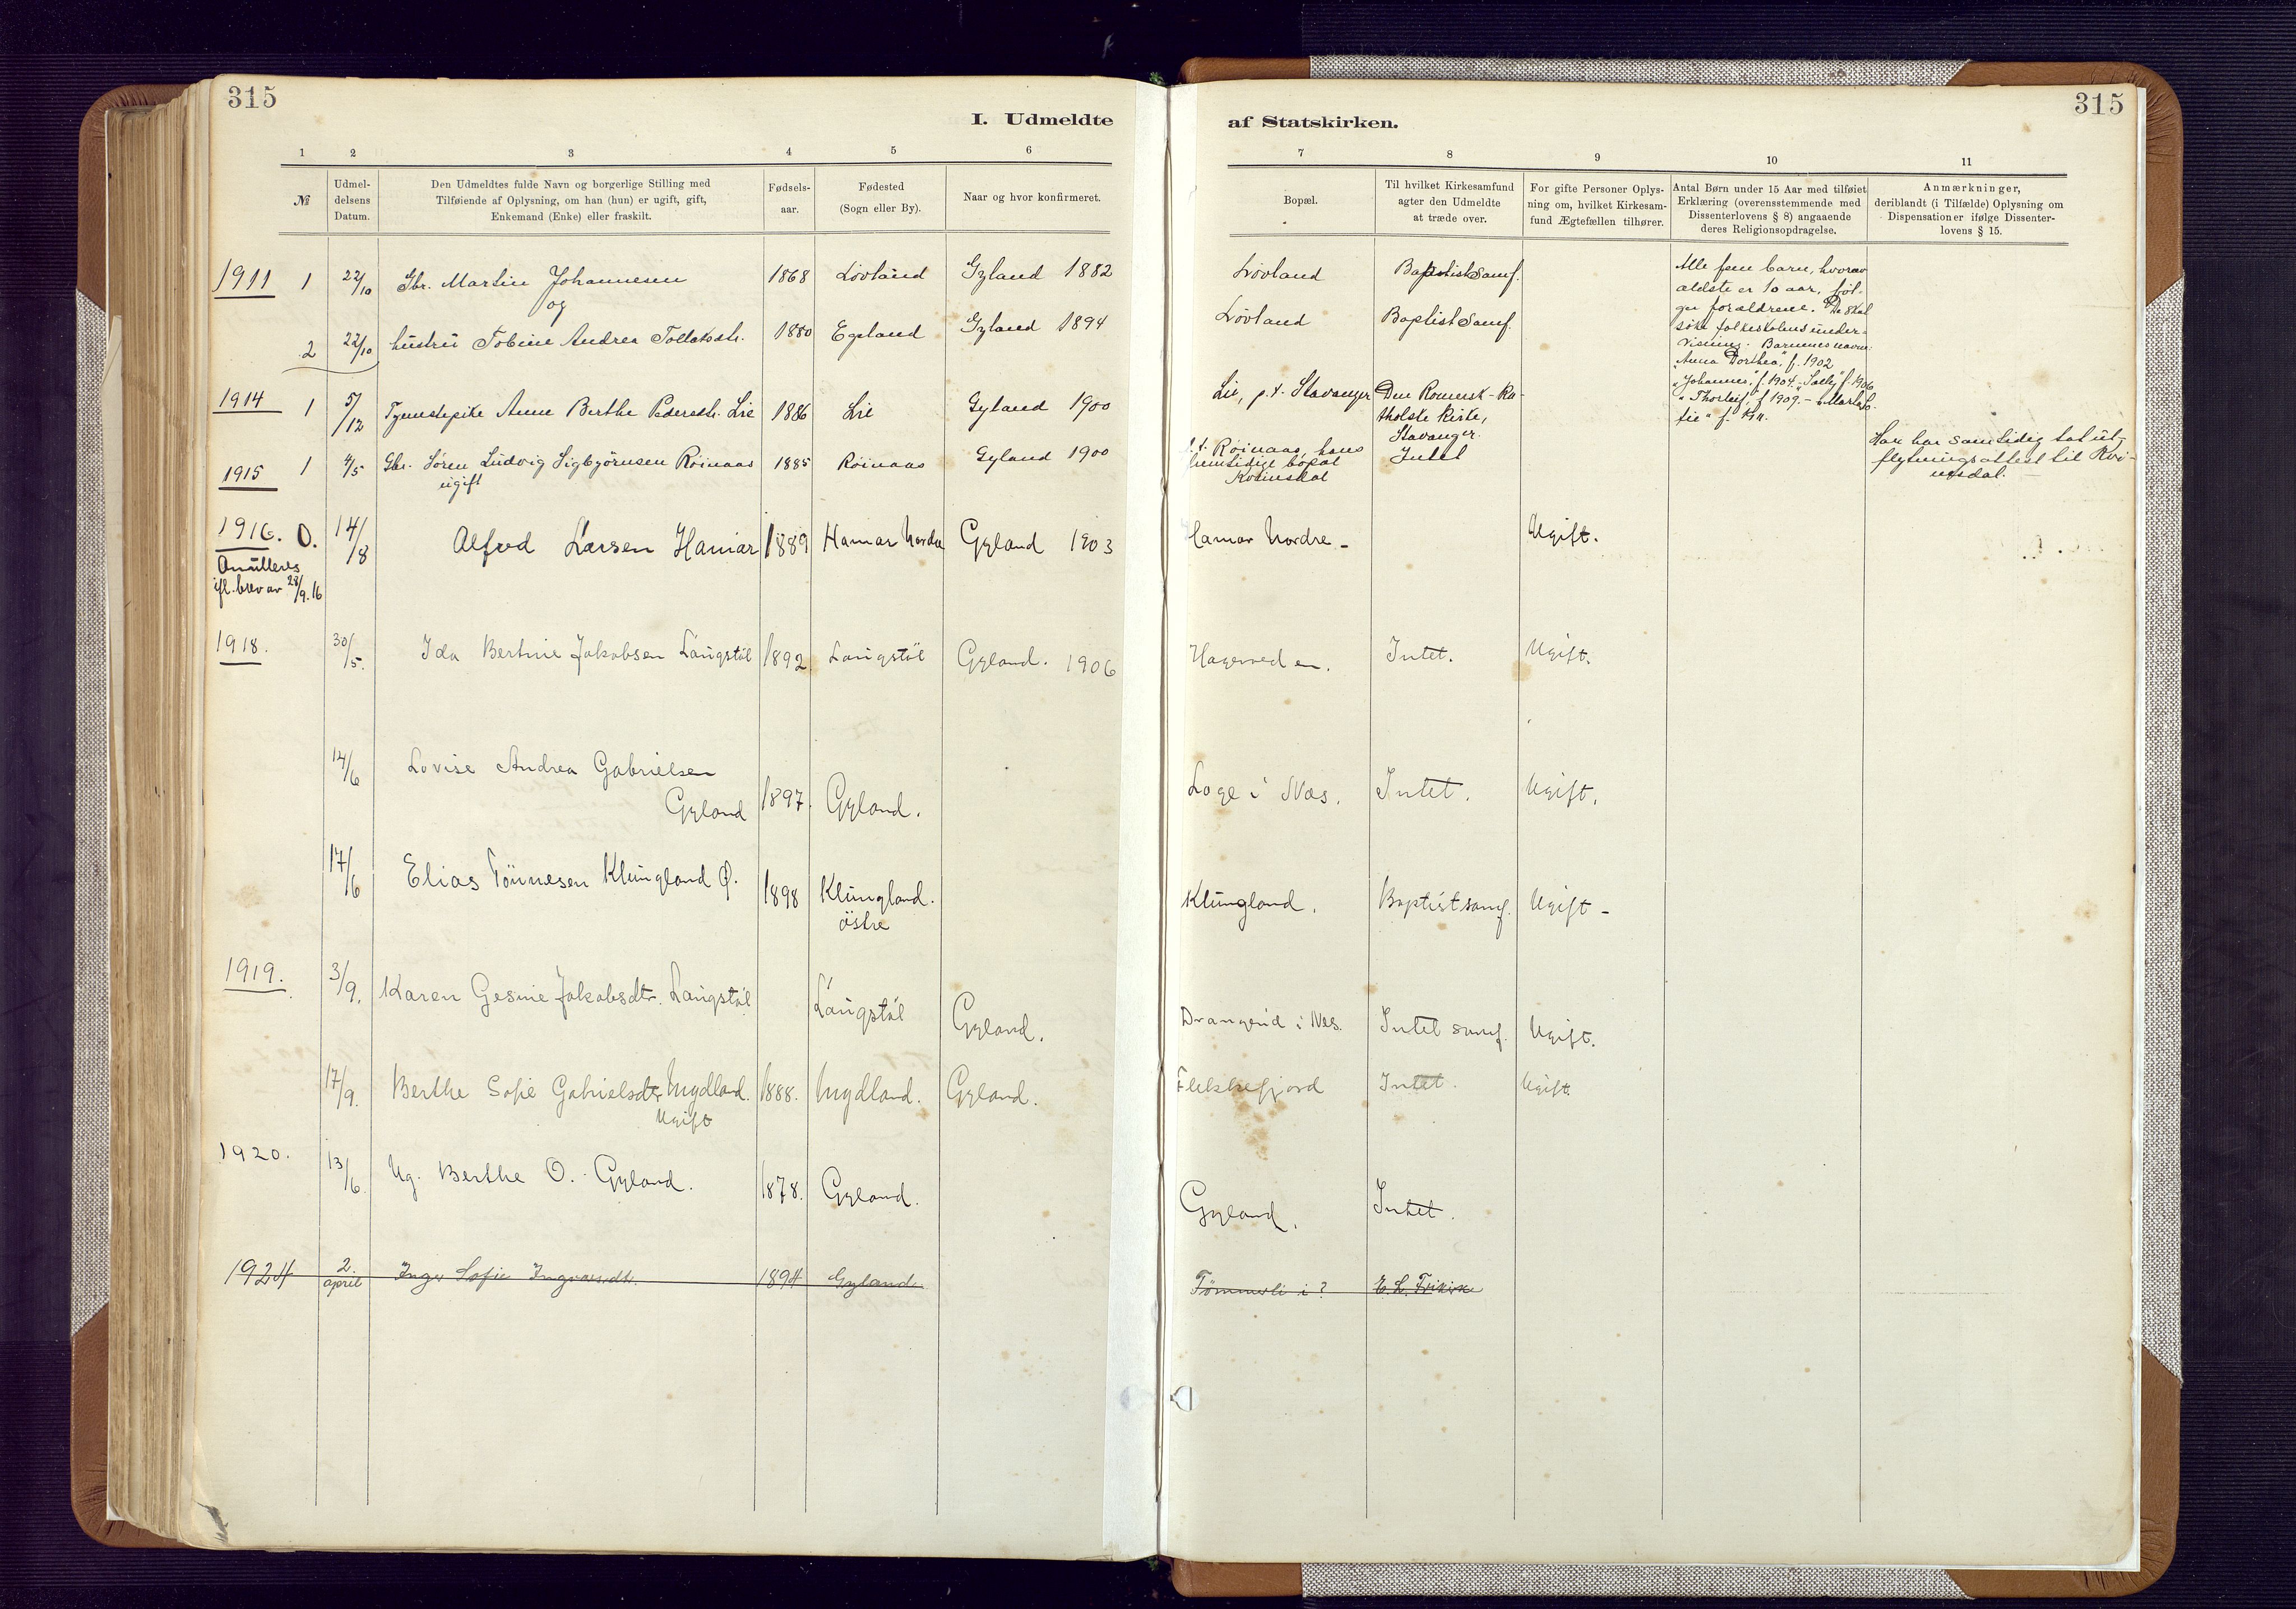 315
315
I. Udmeldte af Statskirken.
1 2 3 4 5 6 7 8 9 10 11
№
Udmel-
delsens
Datum.
Den Udmeldtes fulde Navn og borgerlige Stilling med
Tilføiende af Oplysning, om han (hun) er ugift, gift,
Enkemand (Enke) eller fraskilt.
Fødsels-
aar.
Fødested
(Sogn eller By).
Naar og hvor konfirmeret.
Bopæl.
Til hvilket Kirkesamfund
agter den Udmeldte
at træde over.
For gifte Personer Oplys-
ning om, hvilket Kirkesam-
fund Ægtefællen tilhører.
Antal Børn under 15 Aar med tilføiet
Erklæring (overensstemmende med
Dissenterlovens § 8) angaaende
deres Religionsopdragelse.
Anmærkninger,
deriblandt (i Tilfælde) Oplysning om
Dispensationer ifølge Dissenter-
lovens § 15.
1911 1 22/10 Gbr. Martin Johannesen 1868 Lövland Gyland 1882 Lövland Baptistsamf.
og
2 22/10 hustru Tobine Andrea Tollaksdtr. 1880 Egeland Gyland 1894 Lövland Baptistsamf.
Alle fem barn, hvorav
ældste er 10 aar, föl-
ger forældrene. De skal
söke folkeskolens under-
visning. Barnenes navne:
"Anna Dorthea", f. 1902
"Johannes", f. 1904. "Sally" f. 1906
"Thorleif", f. 1909.
1914 1 5/12 Tjenestepike Anne Berthe Pedersdtr. Lie 1886 Lie Gyland 1900 Lie, p.t. Stavanger Den Romersk-Ka-
tholske Kirke,
Stavanger.
1915 1 4/5 Gbr. Sören Ludvig Sigbjörnsen Röinaas 1885 Röinaas Gyland 1900 p.t. Röinaas, hans Intet
ugift
fremtidige bopæl
Kvinesdal
Han har samtidig tat ut-
flytningsattest til Kvi-
nesdal.
1916. 0. 14/8 Alfred Larsen Hamar 1889 Hamar Nordre Gyland 1903 Hamar Nordre - Ugift.
Anulleres
ifl. brev av 28/9. 16
1918. 30/5. Ida Bertine Jakobsen Langstöl 1892 Langstöl Gyland. 1906 Intet. Ugift.
14/6 Lovise Andrea Gabrielsen
Gyland 1897. Gyland. Loge i Næs. Intet. Ugift.
17/6 Elias Tönnesen Klungland Ö. 1898 Klungland. Klungland. Baptistsamf. Ugift -
östre
1919. 3/9. Karen Gesine Jakobsdtr. Langstöl Langstöl Gyland. Drangeid i Næs. Intet samf. Ugift.
17/9. Berthe Sofie Gabrielsdtr. Nygdland. 1888. Nygdland. Gyland. Flekkefjord Intet. Ugift.
Ugift
1920. 13/6. Ug. Berthe O. Gyland. 1878. Gyland. Gyland. Intet.
1924 2. april Inger Sofie Ingvarsdtr. 1894 Gyland Tömmerli i? E. L. Frikirke